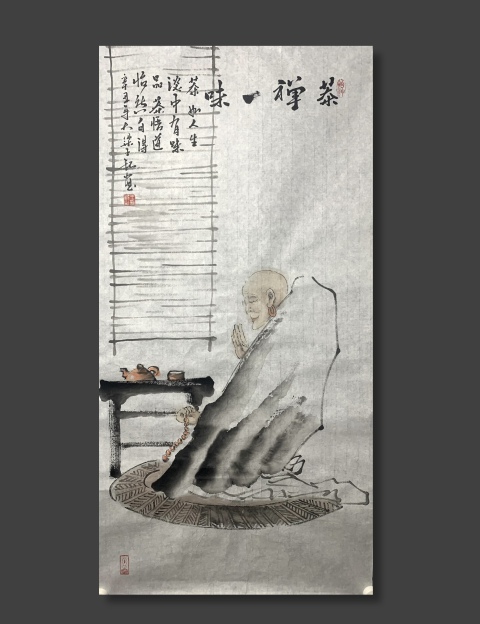 茶禅一味
茶如人生
淡中有味
品茶悟道
怡然自得
辛丑年